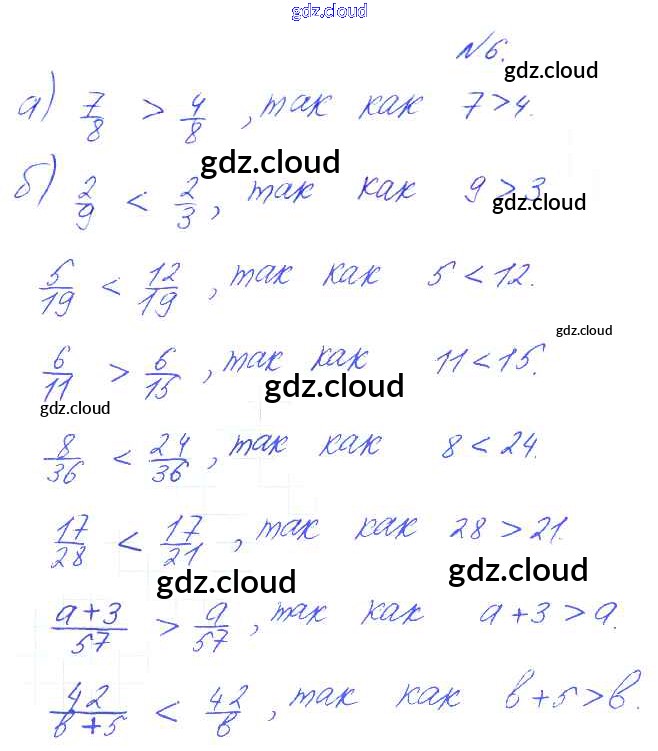 gdz.cloud
№6.
gdz.cloud
а) 7/8 > 4/8, так как 7>4.
gdz.cloud
б) 2/9 < 2/3, так как 9>3
gdz.cloud
5/19 < 12/19, так как 5<12.
gdz.cloud
6/11 > 6/15, так как 11<15.
gdz.cloud
gdz.cloud
8/36 < 24/36, так как 8<24.
17/28 < 17/21, так как 28>21.
gdz.cloud
gdz.cloud
a+3/57 > a/57, так как a+3>a.
42/b+5 < 42/b, так как b+5>b.